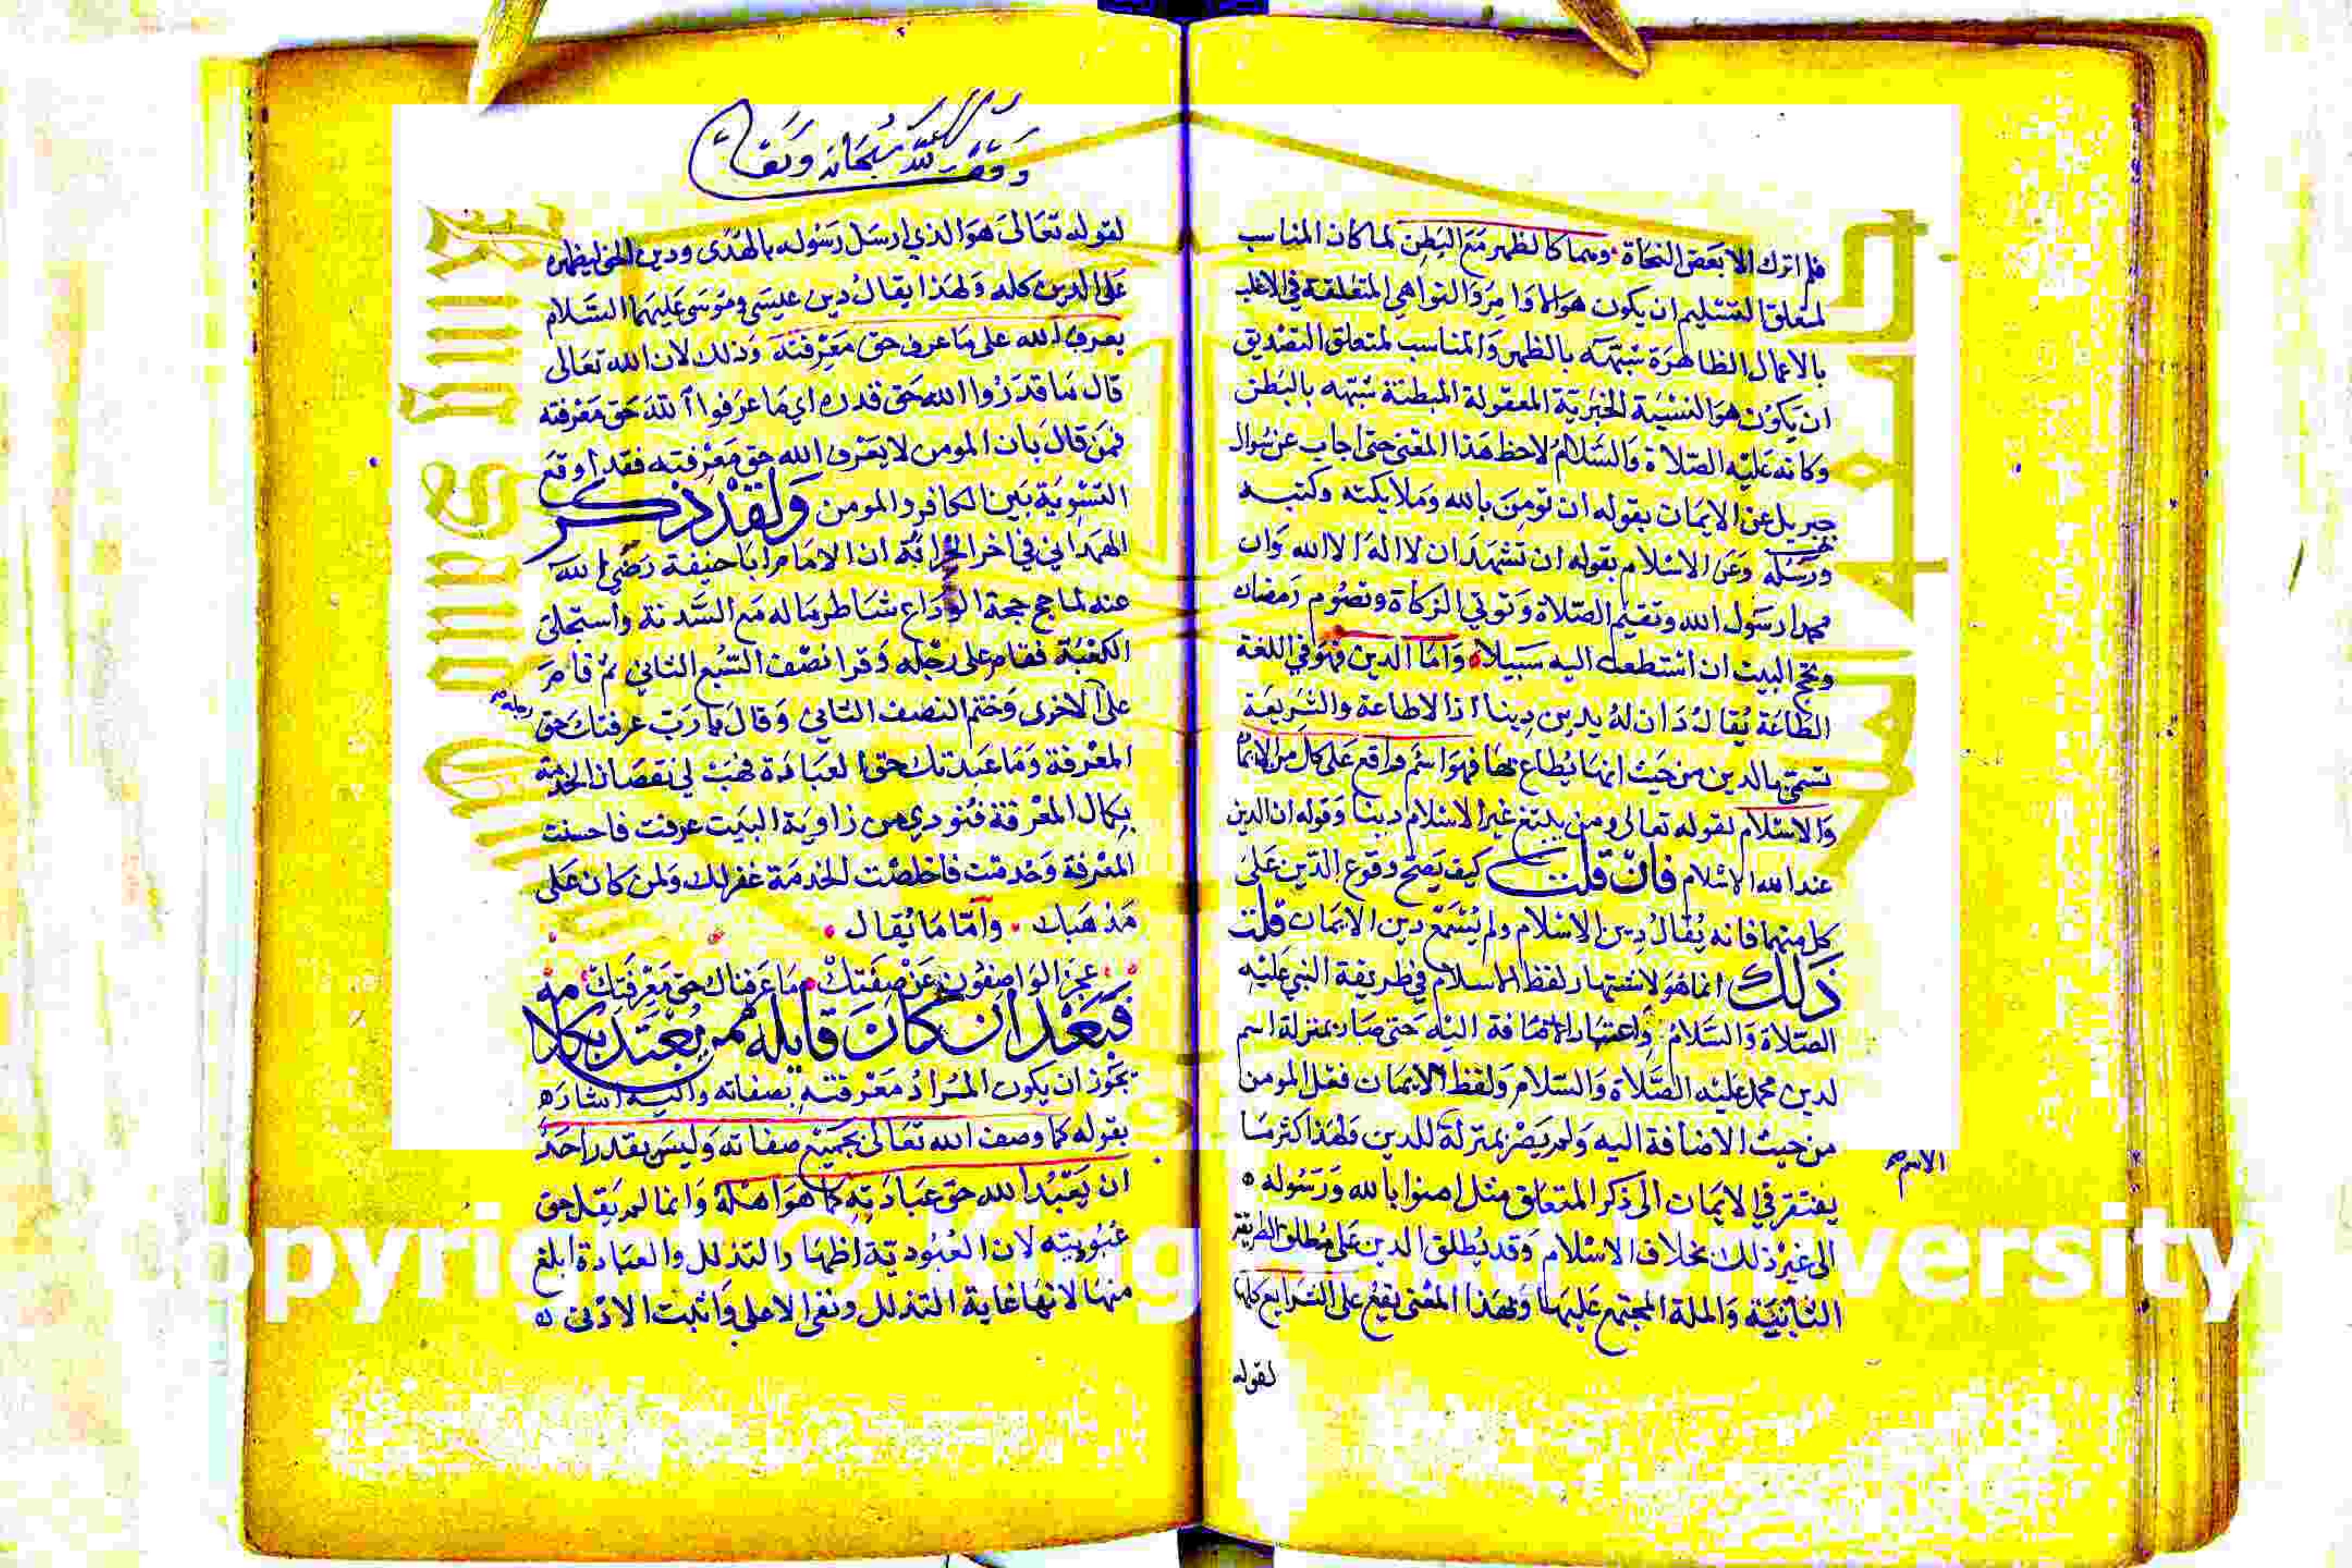 فلم اترك الا بعض النحاة وهما كالظهر مع البطن لما كان المناسب
لمتعلق التسليم ان يكون هو الاوامر والنواهي المتعلقة في الاغلب
بالاعمال الظاهرة شبهه بالظهر والمناسب لمتعلق التصديق
ان يكون هو النسبة الخبرية المعقولة المبطنة شبهه بالبطن
وكانه عليه الصلاة والسلام لاحظ هذا المعنى حتى اجاب عن سوال
جبريل عن الايمان بقوله ان تومن بالله وملايكته وكتبه
ورسله وعن الاسلام بقوله ان تشهد ان لا اله الا الله وان
محمدا رسول الله وتقيم الصلاة وتوتي الزكاة وتصوم رمضان
وتحج البيت ان استطعت اليه سبيلا واما الدين فهو في اللغة
الطاعة يقال دان له يدين دينا اذا اطاعه والشريعة
تسمى بالدين من حيث انها يطاع بها فهو اسم واقع على كل من الايمان
والاسلام لقوله تعالى ومن يبتغ غير الاسلام دينا وقوله ان الدين
عند الله الاسلام فان قلت كيف يصح وقوع الدين على
كل منهما فانه يقال دين الاسلام ولم يسمع دين الايمان قلت
ذلك انما هو لاشتهار لفظ الاسلام في طريقة النبي عليه
الصلاة والسلام واعتبار الاضافة اليه حتى صار بمنزلة اسم
لدين محمد عليه الصلاة والسلام ولفظ الايمان فعل المومن
من حيث الاضافة اليه ولم يصر بمنزلة للدين ولهذا كثر ما
الاسم صح
يفتقر في الايمان الى ذكر المتعلق مثل امنوا بالله ورسوله
الى غير ذلك بخلاف الاسلام وقد يطلق الدين على مطلق الطريقة
الثابتة والملة المجتمع عليها وبهذا المعنى يقع على الشرايع كلها
لقوله
وقف لله سبحانه وتعالى
لقوله تعالى هو الذي ارسل رسوله بالهدى ودين الحق ليظهره
على الدين كله ولهذا يقال دين عيسى وموسى عليهما السلام
يعرف الله على ما عرف حق معرفته وذلك لان الله تعالى
قال ما قدروا الله حق قدره اي ما عرفوا الله حق معرفته
فمن قال بان المومن لا يعرف الله حق معرفته فقد اوقع
التسوية بين الكافر والمومن ولقد ذكر
الهمداني في اخر الخزانة ان الامام ابا حنيفة رضي الله
عنه لما حج حجة الوداع شاطر ماله مع السدنة واستخلى
الكعبة فقام على رجله وقرا نصف السبع الثاني ثم قام
رجله صح
على الاخرى وختم النصف الثاني وقال يا رب عرفتك حق
المعرفة وما عبدتك حق العبادة فهب لي نقصان الخدمة
بكمال المعرفة فنودي من زاوية البيت عرفت فاحسنت
المعرفة وخدمت فاخلصت الخدمة غفر لك ولمن كان على
مذهبك واما ما يقال
عجز الواصفون عن صفتك ما عرفناك حق معرفتك
فبعد ان كان قايله ممن يعتد بكلامه
يجوز ان يكون المراد معرفته بصفاته واليه اشاره
بقوله كما وصف الله تعالى بجميع صفاته وليس يقدر احد
ان يعبد الله حق عبادته كما هو اهله وانما لم يقل حق
عبوديته لان العبودية اظهار التذلل والعبادة ابلغ
منها لانها غاية التذلل ونفي الاعلى واثبت الادنى
Copyright © King Saud University